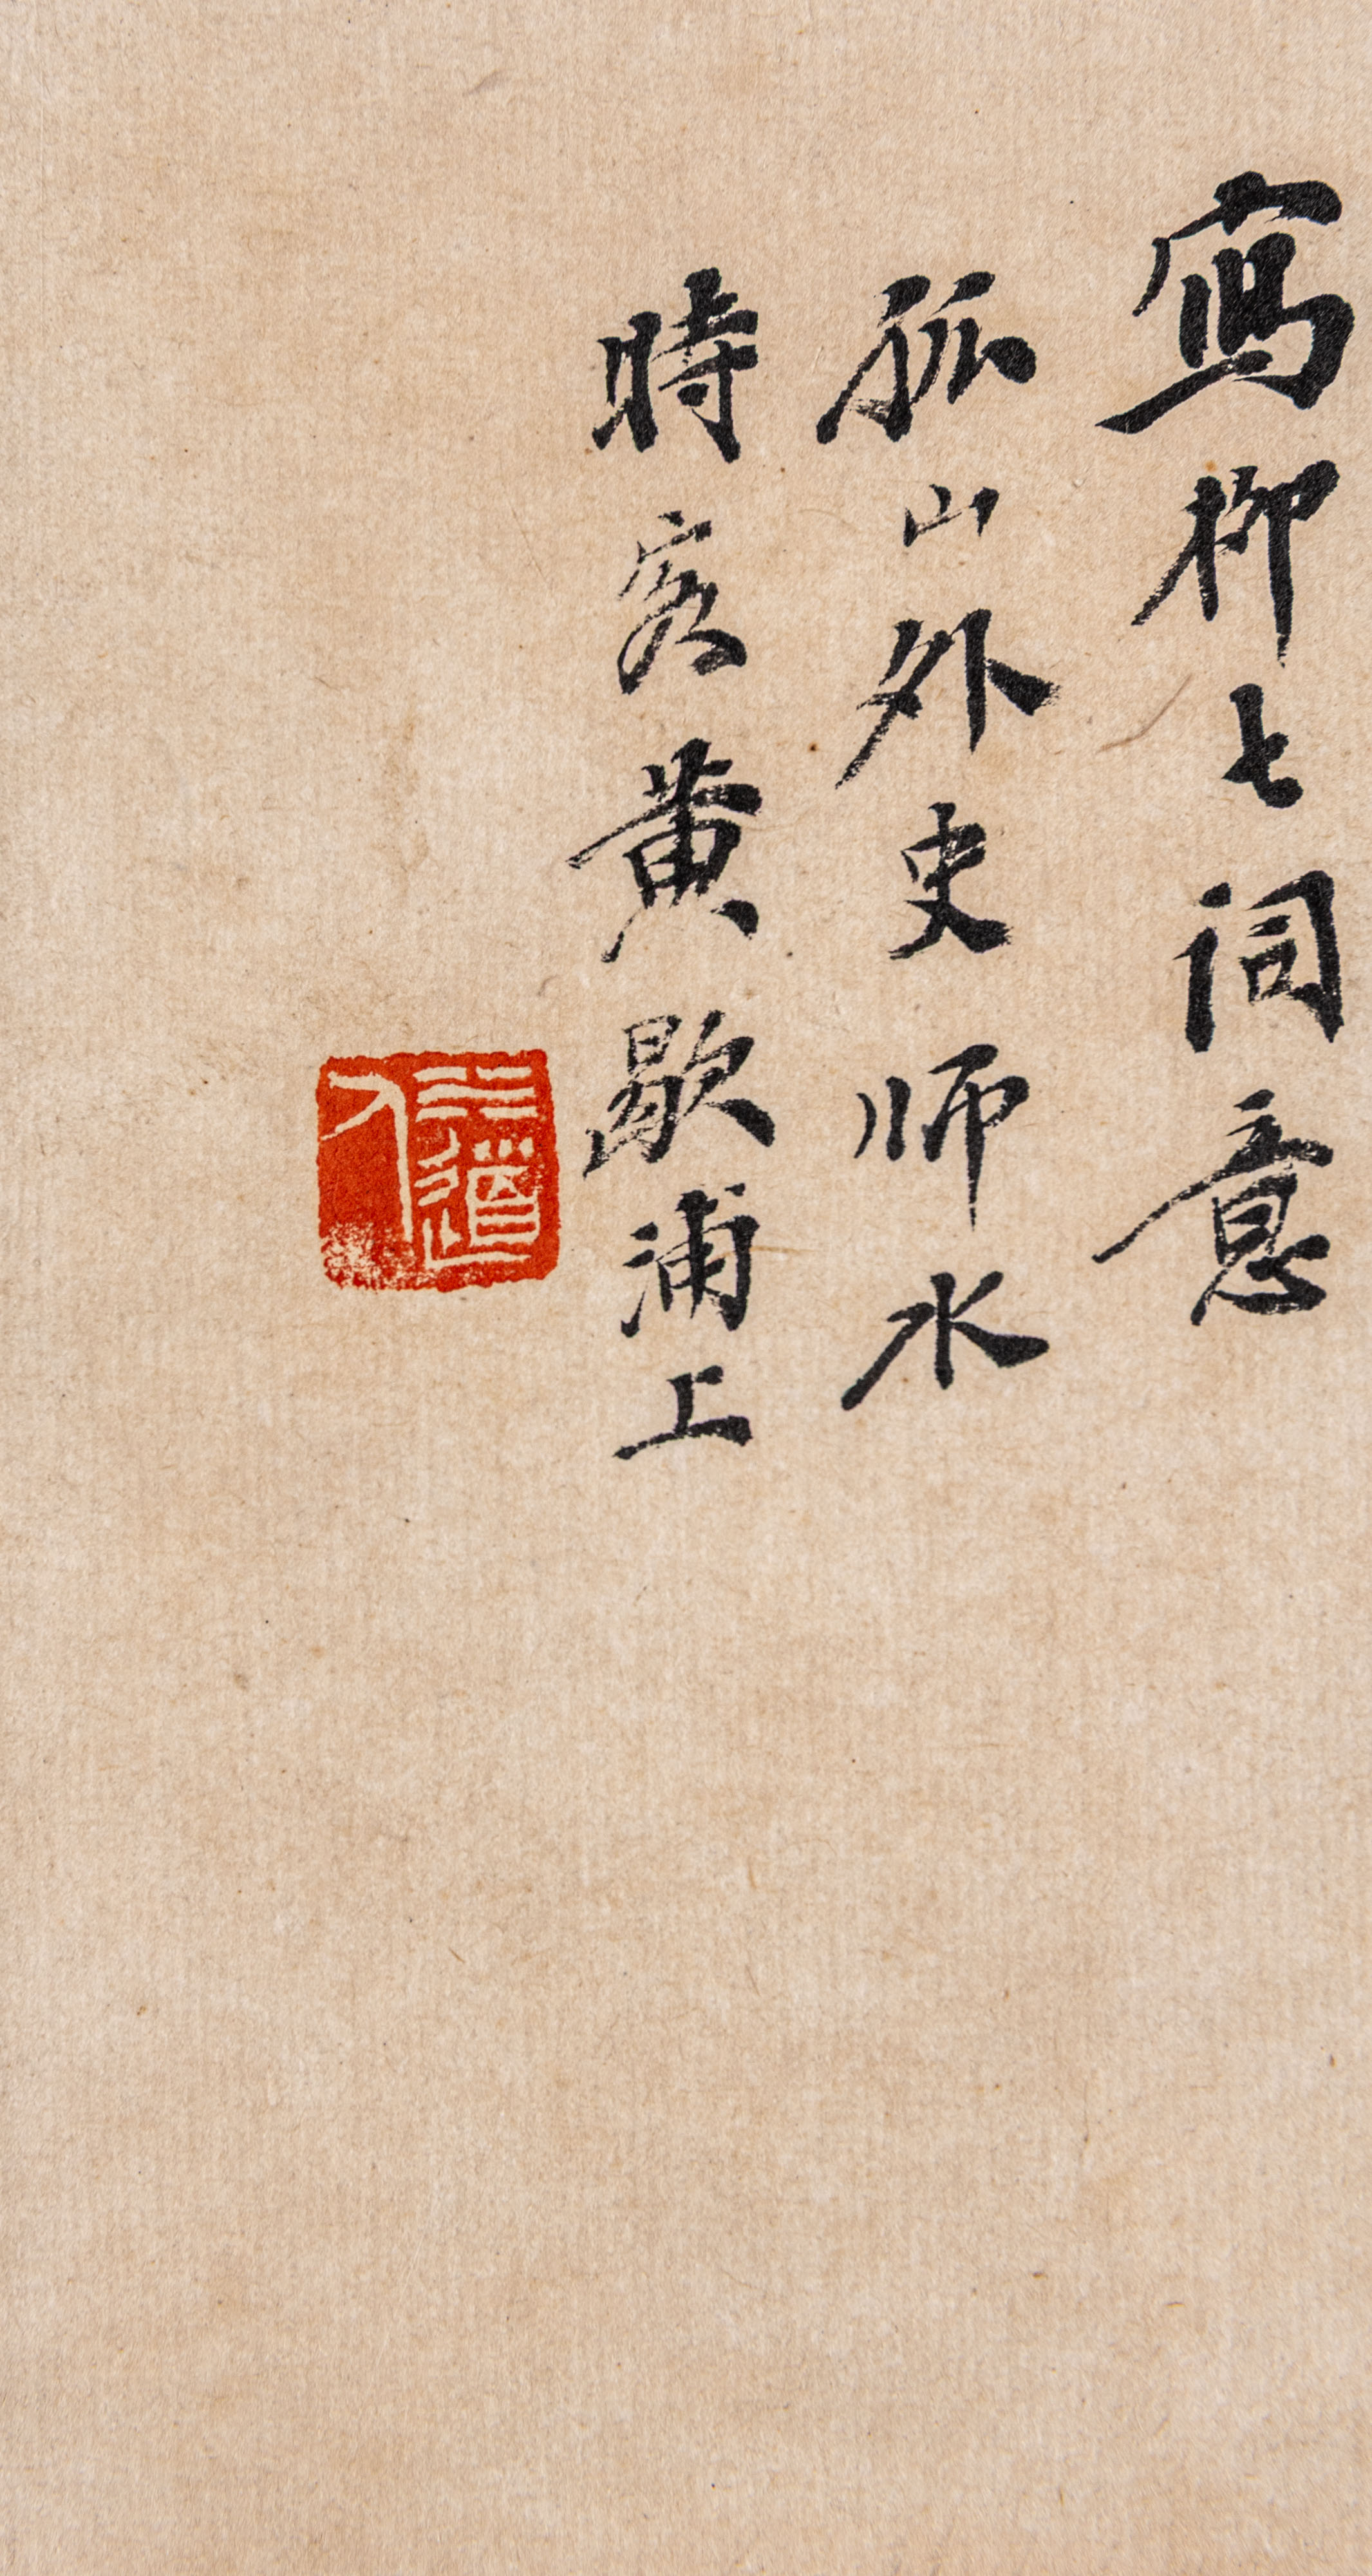 寫柳七词意
孤山外史师水
時客黄歇浦上
六道人